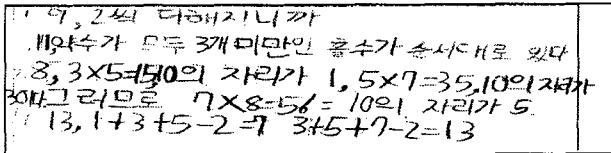 9, 2씩 더해지니까
11, 약수가 모두 3개 미만인 홀수가 순서대로 있다
8, 3×5=15, 10의 자리가 1, 5×7=35, 10의 자리가
3이다 그러므로 7×8=56= 10의 자리가 5
13, 1+3+5-2=7 3+5+7-2=13